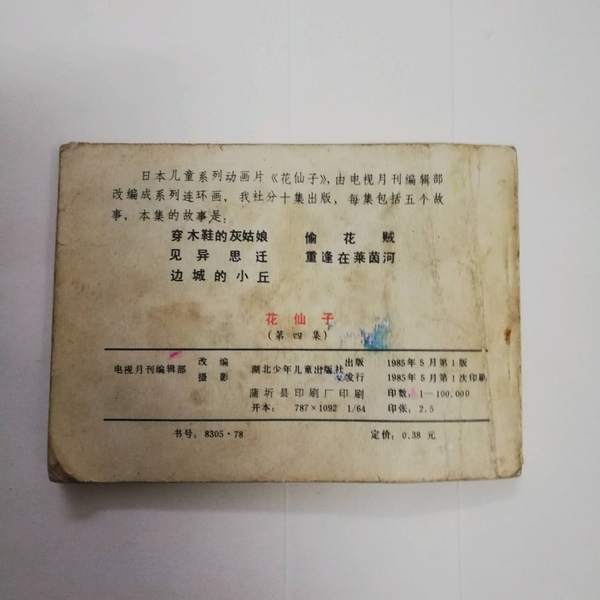 日本儿童系列动画片《花仙子》，由电视月刊编辑部
改编成系列连环画，我社分十集出版，每集包括五个故
事，本集的故事是：
穿木鞋的灰姑娘 偷花贼
见异思迁 重逢在莱茵河
边城的小丘
花仙子
（第四集）
电视月刊编辑部 改编 摄影 湖北少年儿童出版社 出版 发行 1985年5月第1版
1985年5月第1次印刷
蒲圻县印刷厂印刷 印数：1—100,000
开本：787×1092 1/64 印张：2.5
书号：8305·78 定价：0.38元